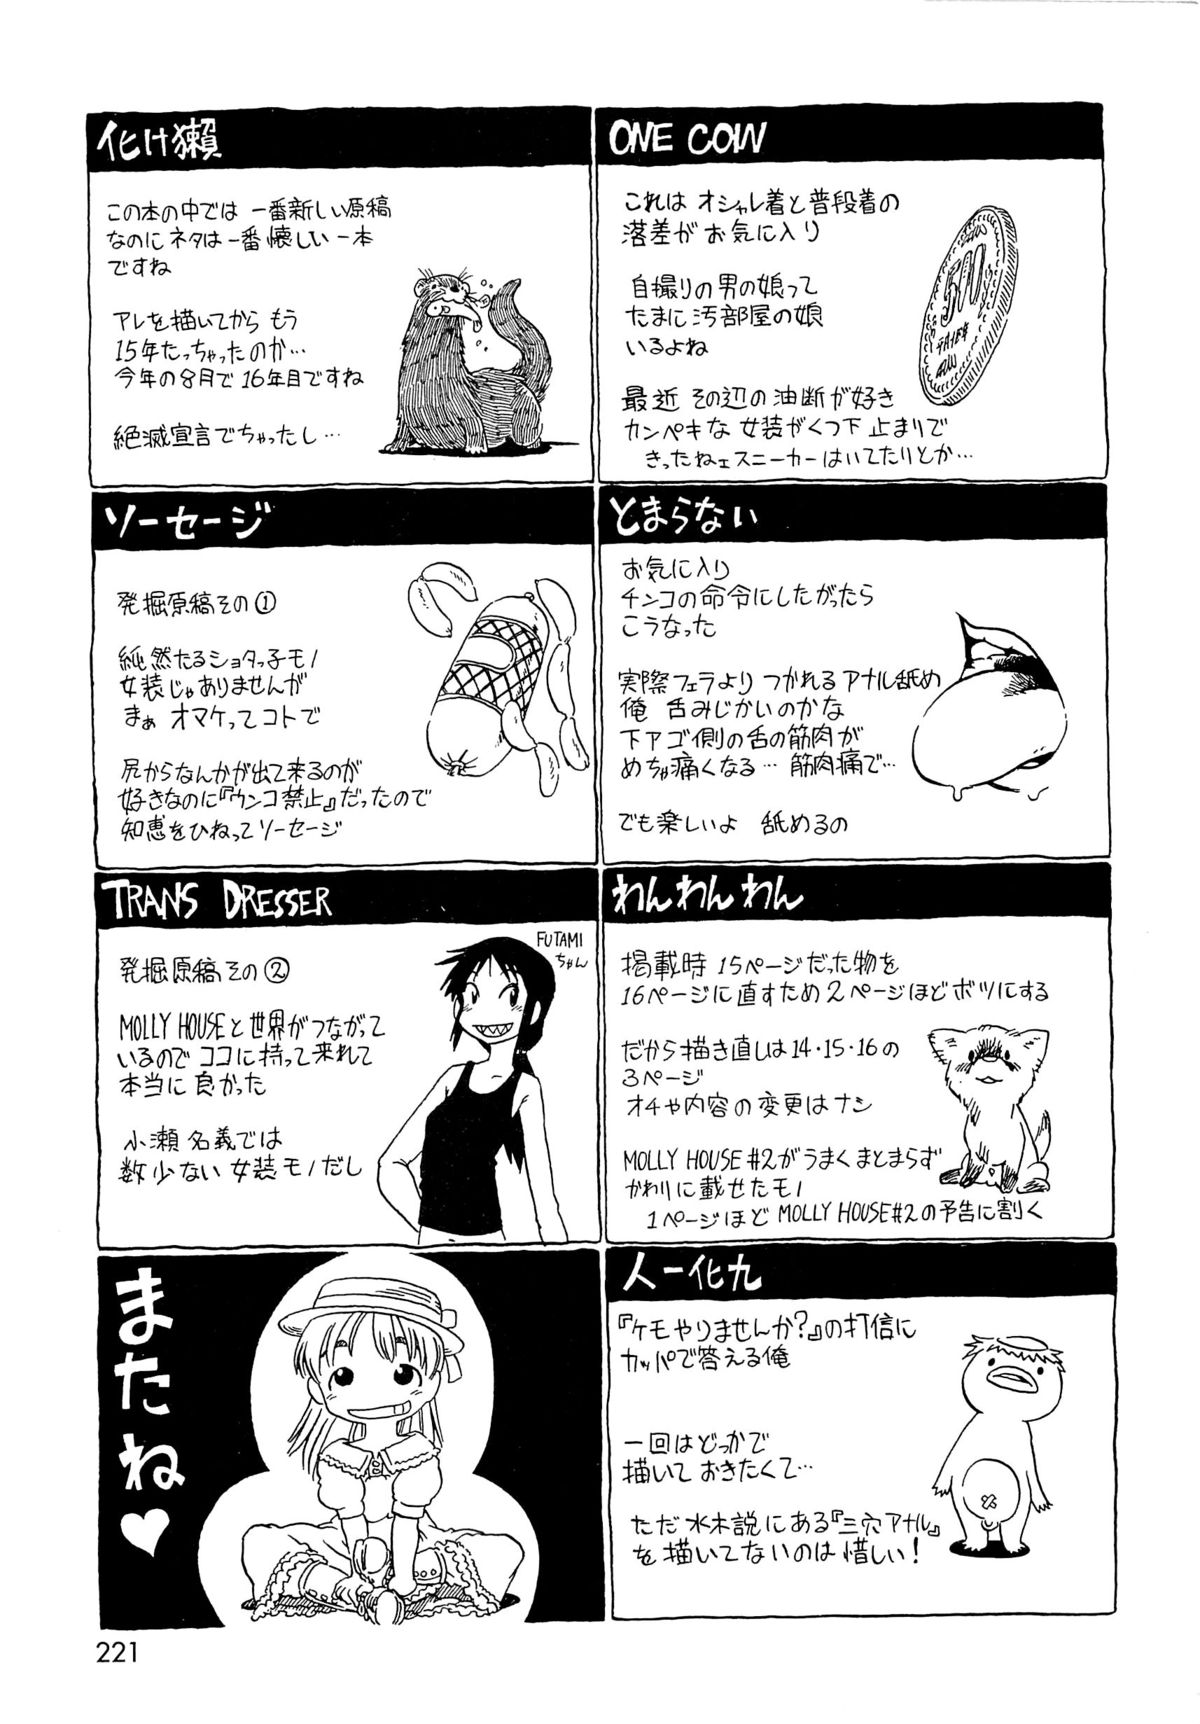 ONE COIN
これは オシャレ着と普段着の
落差がお気に入り
自撮りの男の娘って
たまに汚部屋の娘
いるよね
最近 その辺の油断が好き
カンペキな女装がくつ下止まりで
きったねェスニーカーはいてたりとか…
とまらない
お気に入り
チンコの命令にしたがったら
こうなった
実際フェラより つかれるアナル舐め
俺 舌みじかいのかな
下アゴ側の舌の筋肉が
めちゃ痛くなる… 筋肉痛で…
でも楽しいよ 舐めるの
わんわんわん
掲載時 15ページだった物を
16ページに直すため 2ページほどボツにする
だから描き直しは14・15・16の
3ページ
オチや内容の変更はナシ
MOLLY HOUSE #2がうまくまとまらず
かわりに載せたモノ
1ページほど MOLLY HOUSE#2の予告に割く
人一化九
『ケモやりませんか?』の打信に
カッパで答える俺
一回はどっかで
描いておきたくて…
ただ 水木説にある『三穴アナル』
を描いてないのは惜しい!
化け獺
この本の中では 一番新しい原稿
なのにネタは一番懐しい一本
ですね
アレを描いてから もう
15年たっちゃったのか…
今年の8月で16年目ですね
絶滅宣言でちゃったし…
ソーセージ
発掘原稿その①
純然たるショタっ子モノ
女装じゃありませんが
まぁ オマケってコトで
尻からなんかが出て来るのが
好きなのに『ウンコ禁止』だったので
知恵をひねってソーセージ
TRANS DRESSER
FUTAMI
ちゃん
発掘原稿その②
MOLLY HOUSEと世界がつながって
いるので ココに持って来れて
本当に良かった
小瀬名義では
数少ない女装モノだし
またね♥
221